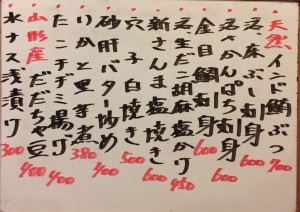 天然インド鮪ぶつ 700
刺身
活かんぱち刺身 600
金目鯛刺身 600
生だこ胡麻塩かけ 450
新さんま塩焼き 600
穴子白焼き 500
砂肝バター炒め 400
いかと里芋煮 380
たこチヂミ揚げ 400
山形産だだちゃ豆 400
水ナス浅漬け 300